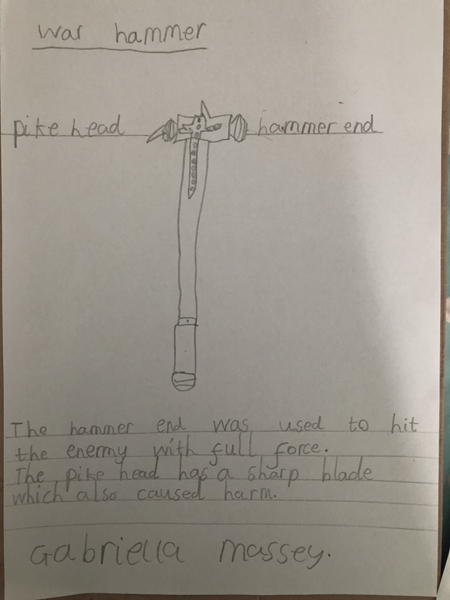 war hammer
pike head
hammer end
The hammer end was used to hit
the enemy with full force.
The pike head has a sharp blade
which also caused harm.
Gabriella Massey.